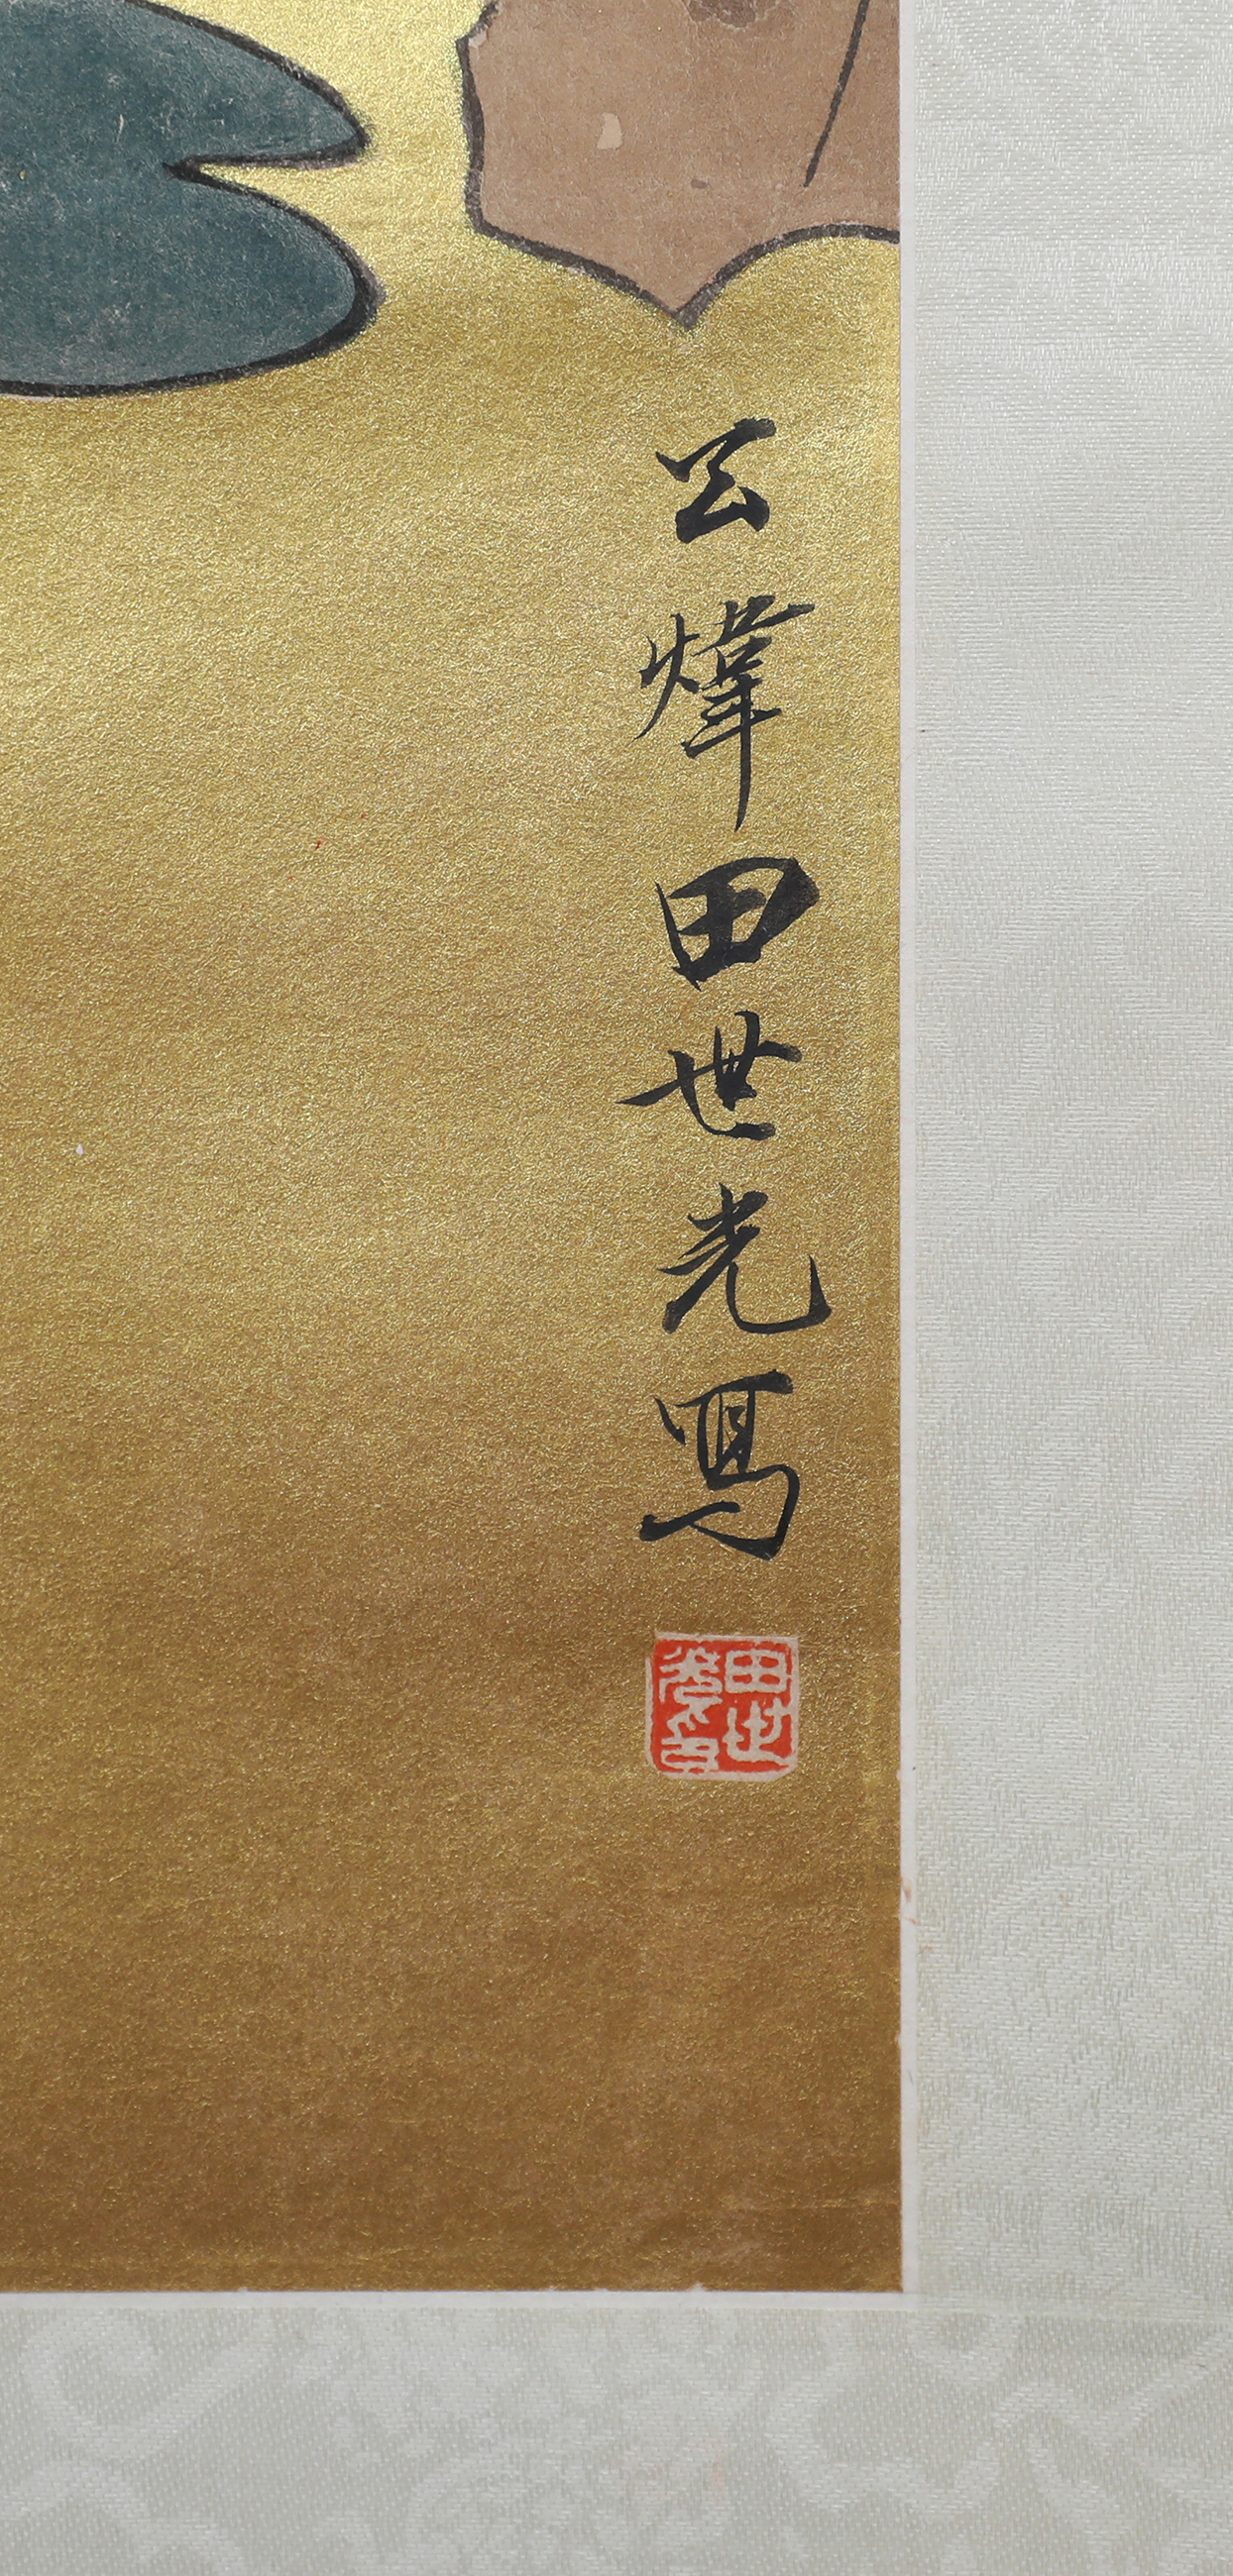 公煒田世光寫
田世光印